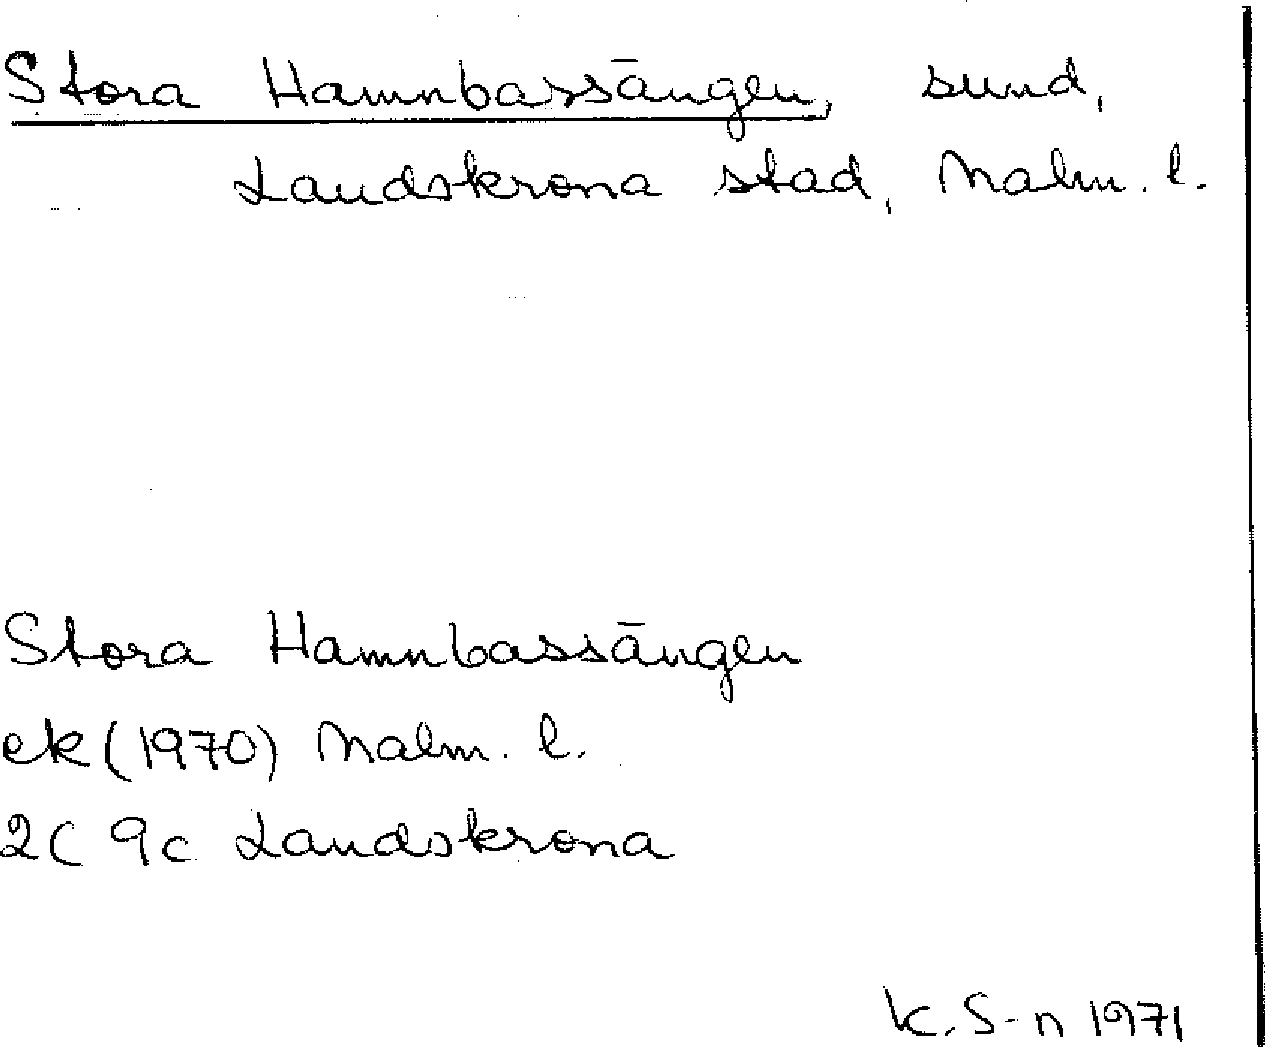 Stora Hamnbassängen, sund,
Landskrona stad, Malm. l.
Stora Hamnbassängen
ek (1970) Malm. l.
2C 9c Landskrona
K. S-n 1971